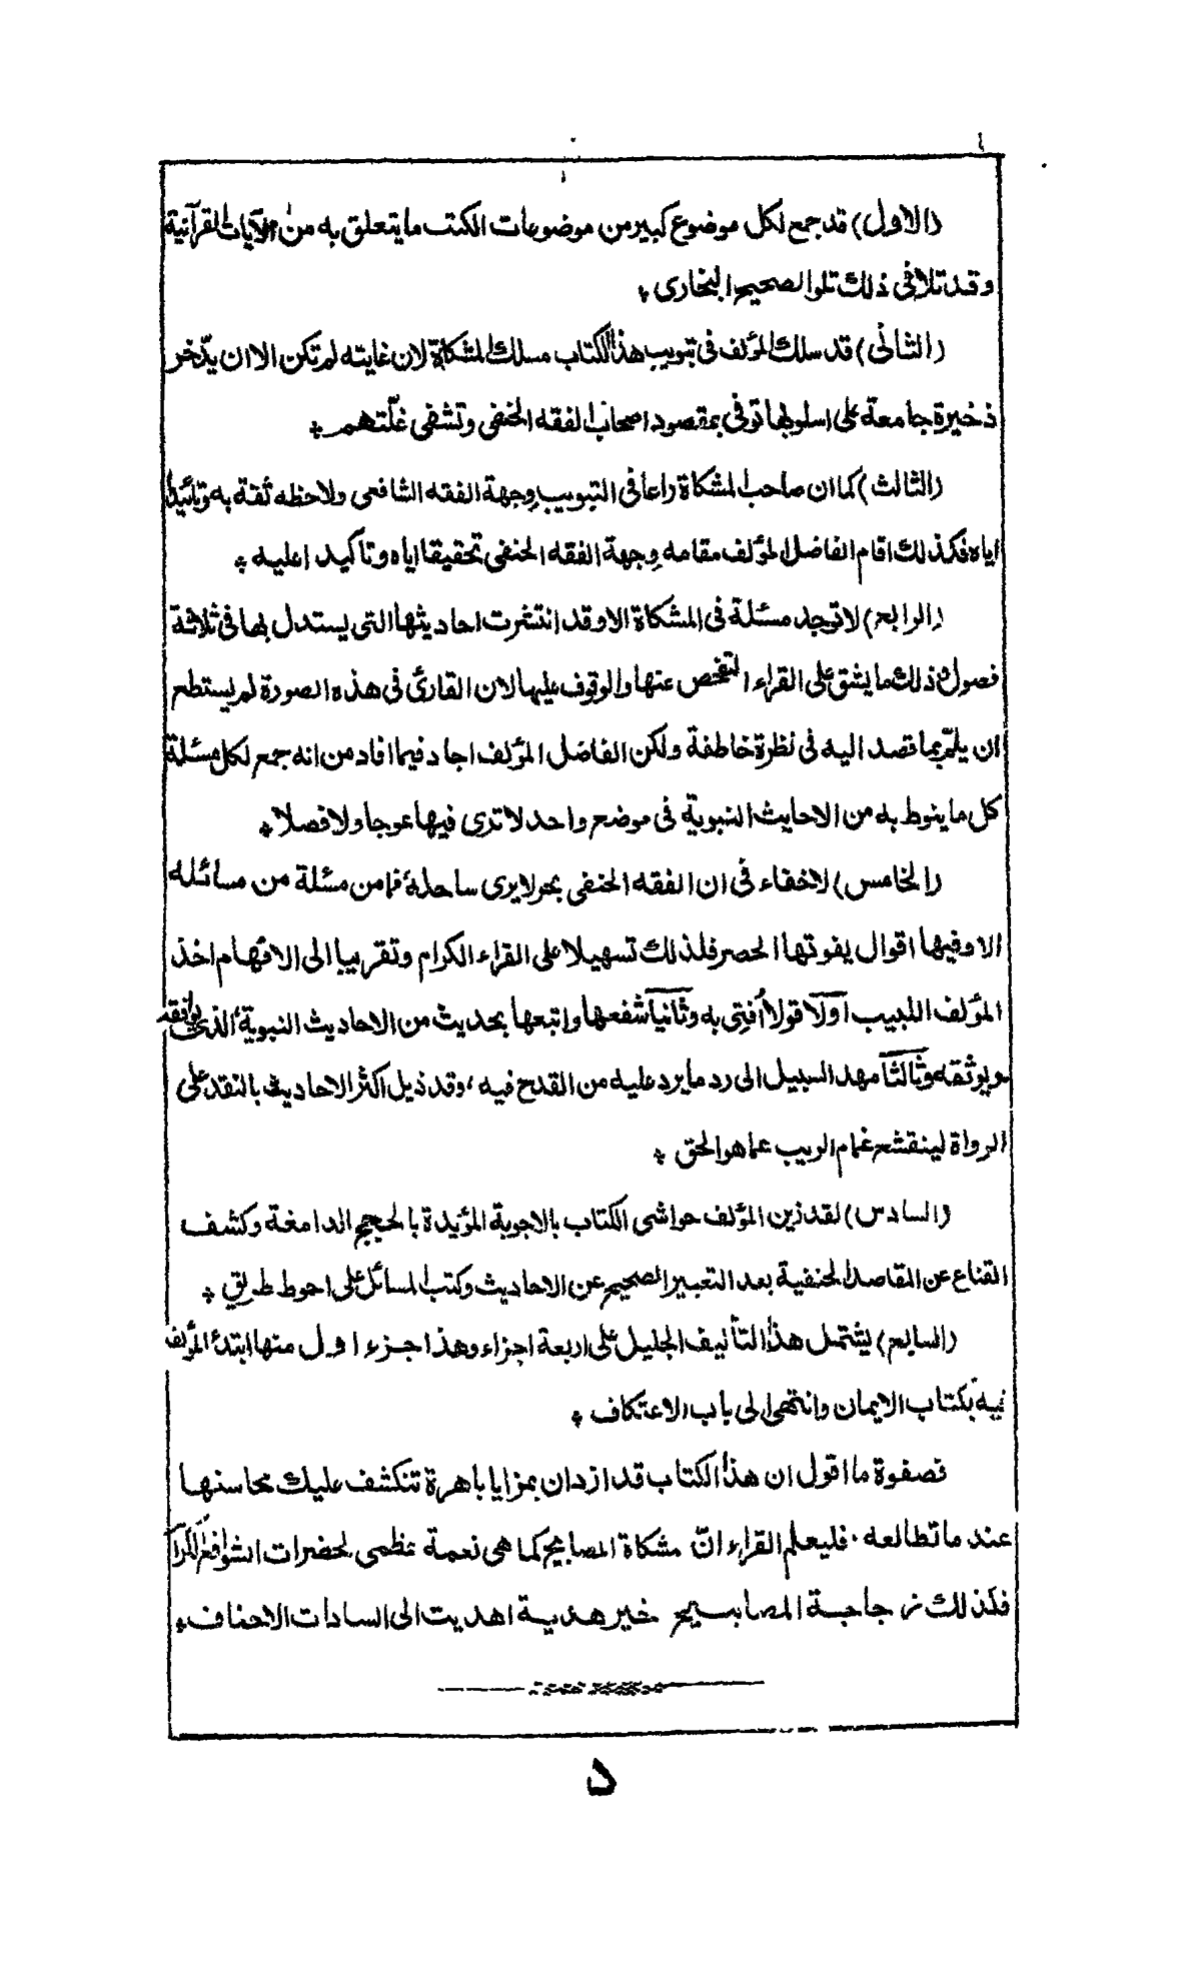 (الاول) قد جمع لكل موضوع كبير من موضوعات الكتب ما يتعلق به من الآيات القرآنية
وقد تلا فى ذلك تلو الصحيح البخارى ٭
(الثانى) قد سلك المؤلف فى تبويب هذا الكتاب مسلك المشكاة لان غايته لم تكن الا ان يدّخر
ذخيرة جامعة على اسلوبها توفى بمقصود اصحاب الفقه الحنفى وتشفى غلّتهم ٭
(الثالث) كما ان صاحب المشكاة راعا فى التبويب وجهة الفقه الشافعى ولاحظه ثقة به وتائيدا
اياه فكذلك اقام الفاضل المؤلف مقامه وجهة الفقه الحنفى تحقيقا اياه وتأكيدا عليه ٭
(الرابع) لا توجد مسئلة فى المشكاة الا وقد انتشرت احاديثها التى يستدل بها فى ثلاثة
فصول وذلك ما يشق على القراء التفحص عنها والوقوف عليها لان القارئ فى هذه الصورة لم يستطع
ان يلمّ بما قصد اليه فى نظرة خاطفة ولكن الفاضل المؤلف اجاد فيما افاد من انه جمع لكل مسئلة
كل ما ينوط به من الاحايث النبوية فى موضع واحد لا ترى فيها عوجا ولا فصلا ٭
(الخامس) لاخفاء فى ان الفقه الحنفى بحر لا يرى ساحله، فما من مئلة من مسائله
الا وفيها اقوال يفوتها الحصر فلذلك تسهيلا على القراء الكرام وتقريبا الى الافهام اخذ
المؤلف اللبيب اولا قولا أفتى به وثانيا شفعها واتبعها بحديث من الاحاديث النبوية، الذى يوافقه
ويوثقه وثالثا مهد السبيل الى رد ما يرد عليه من القدح فيه، وقد ذيل اكثر الاحاديث بالنقد على
الرواة لينقشع غمام الريب عما هو الحق ٭
(السادس) لقد زين المؤلف حواشى الكتاب بالاجوبة المؤيدة بالحجج الدامغة وكشف
القناع عن المقاصد الحنفية بعد التعبير الصحيح عن الاحاديث وكتب المسائل على احوط طريق ٭
(السابع) يشتمل هذا التأليف الجليل على اربعة اجزاء وهذا جزء اول منها ابتدئ المؤلف
فيه بكتاب الايمان وانتهى الى باب الاعتكاف ٭
فصفوة ما اقول ان هذا الكتاب قد ازدان بمزايا باهرة تنكشف عليك محاسنها
عند ما تطالعه · فليعلم القراء انّ مشكاة المصابيح كما هى نعمة عظمى لحضرات الشوافع الكرام
فكذلك زجاجة المصابيح خير هدية اهديت الى السادات الاحناف ٭
د